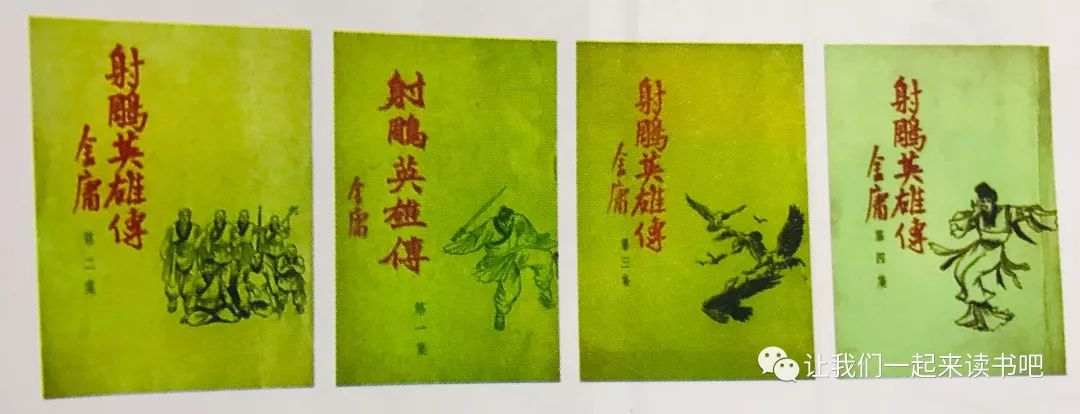 射鵰英雄傳
金庸
第二集
射鵰英雄傳
金庸
第一集
射鵰英雄傳
金庸
第三集
射鵰英雄傳
金庸
第四集
让我们一起来读书吧